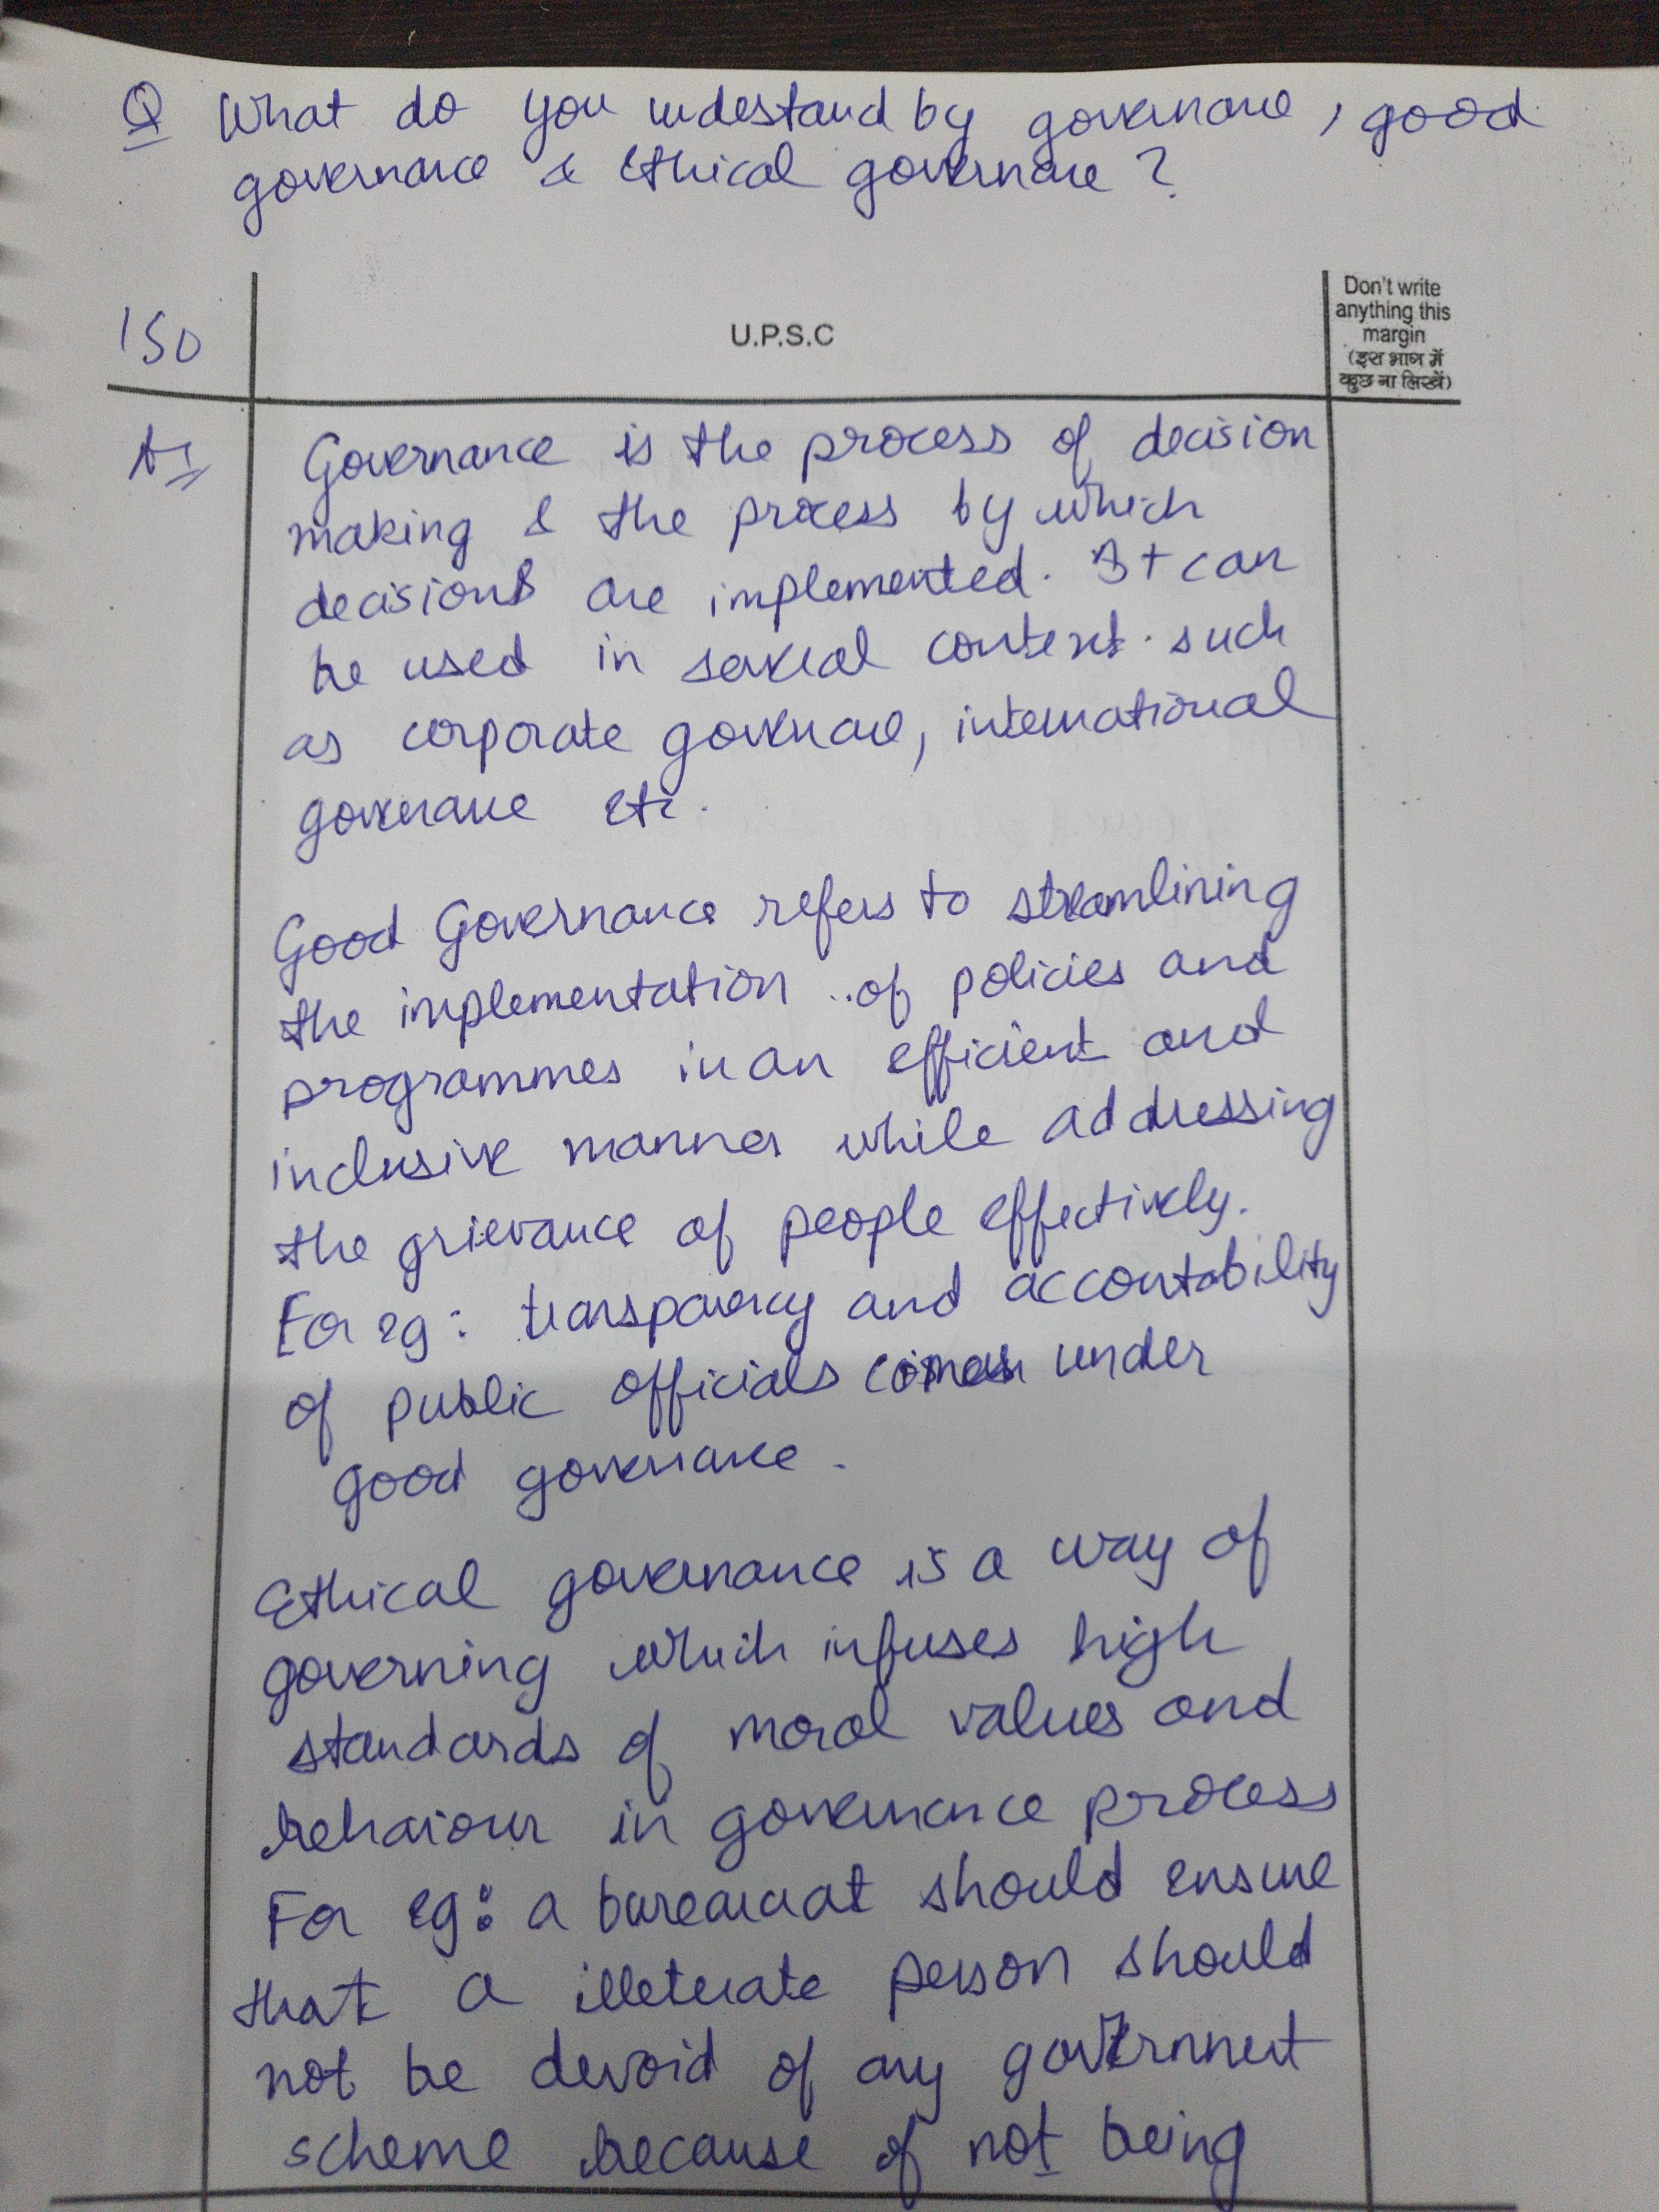 Q What do you understand by governance, good
governance & Ethical governance?
Don't write
anything this
margin
(इस भाग में
कुछ ना लिखें)
150
U.P.S.C
A1
Governance is the process of decision
making & the process by which
decisions are implemented. It can
be used in several context such
as corporate governance, international
governance etc.
Good Governance refers to streamlining
the implementation of policies and
programmes in an efficient and
inclusive manner while addressing
the grievance of people effectively.
For eg: transparency and accountability
of public officials comes under
good governance.
Ethical governance is a way of
governing which infuses high
standards of moral values and
behaviour in governance process
For eg: a bureaucrat should ensure
that a illeterate person should
not be devoid of any government
scheme because of not being